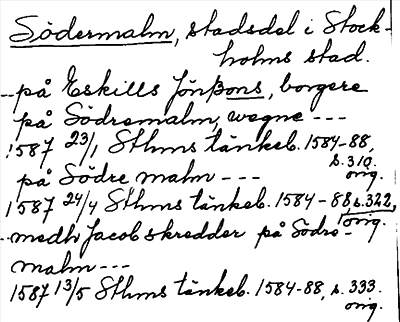 Södermalm, stadsdel i Stock-
holms stad.
--på Eskills Jönßons, borgere
på Södremalm, wegne ---
1587 23/1 Sthms tänkeb. 1584-88,
s. 310.
orig.
på Södre malm ---
1587 24/4 Sthms tänkeb. 1584-88 s. 322,
orig.
--medh Jacob skredder på Södre-
malm---
1587 13/5 Sthms tänkeb. 1584-88, s. 333.
orig.